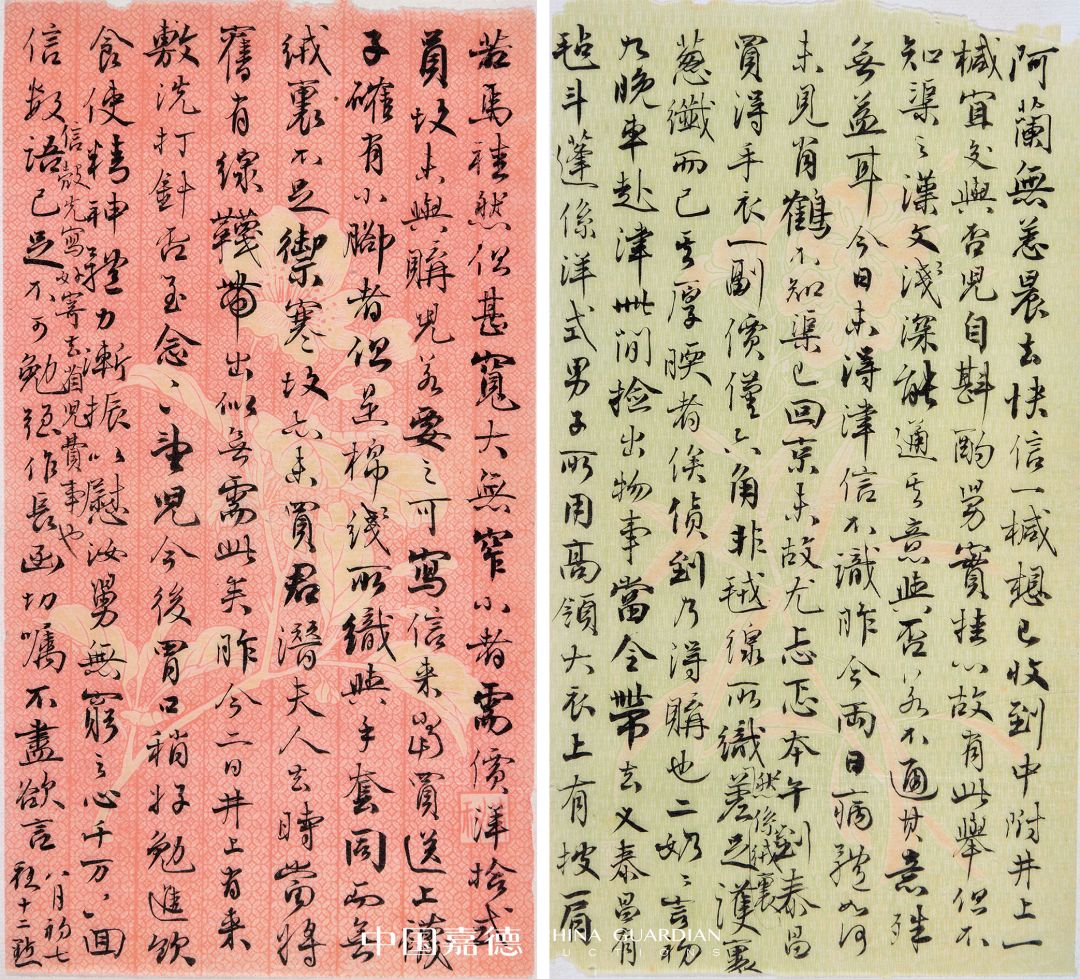 阿蘭無恙晨去快信一椷想已收到中附井上一
椷宜交與否兒自斟酌舅實挂心故有此舉但不
知渠之漢文淺深能通其意與否若不通其意殊
無益耳今日未得津信不識昨今兩日病體如何
未見肖鶴不知渠已回京未故尤忐忑本午到泰昌
買得手衣一副價僅六角非毧線所織差足護
然係絨裏
蔥纖而已其厚腝者俟偵到乃得購也二奶奶言初
九晚車赴津此間撿出物事當令帶去又泰昌有
毡斗蓬係洋式男子所用高領大衣上有披肩
若馬褂然但甚寬大無窄小者需價洋拾弍
員故未與購兒若要之可寫信來當買送上韈
子確有小腳者但是棉綫所織與手套同而無
絨裏不足禦寒故亦未買君潛夫人去時當將
舊有線韈帶出似無需此矣昨今二日井上有來
敷洗打針否至念、望兒今後胃口稍好勉進飲
食使精神體力漸振以慰汝舅無窮之心千万、回
信殼先寫好寄去省兒費事也
信數語已足不可勉強作長函切囑不盡欲言
八月初七
夜十二點
中国嘉德
CHINA GUARDIAN
AUCTIONS